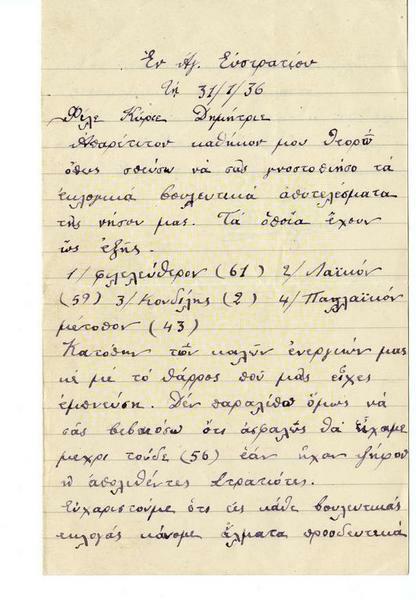 Ἐν Αγ. Εὐστρατίου
Τῇ 31/1/36
Φίλε Κύριε Δημήτριε
Απαρέτιτον καθῆκον μου θεορῶ
ὅπος σπεύσω νὰ σᾶς γνοστοπιήσο τὰ
ἐκλογικά βουλευτικά ἀποτελέσματα
τῆς νήσου μας. Τὰ ὁποῖα ἔχουν
ὡς ἑξῆς.
1/ φιλελεύθερον (61) 2/ Λαϊκόν
(59) 3/ Κονδύλης (2) 4/ Παλλαϊκόν
μέτοπον (43)
Κατόπην τῶν καλῶν ἐνεργιῶν μας
κὲ μὲ τὸ θάρρος ποῦ μᾶς εἶχες
ἐμπνεύση. Δέν παραλίπω ὅμως νὰ
σᾶς βεβαιόσω ὁτι ἀσφαλῶς θὰ εἴχαμε
μεχρι τοῦδε (56) ἐὰν ἦχον ψήφον
ἡ ἀπολιθέντες Στρατιότες.
Εὐχαριστούμε ὁτι τὲς κάθε βουλευτικάς
εκλογάς κάνομε ἄλματα προοδευτικά